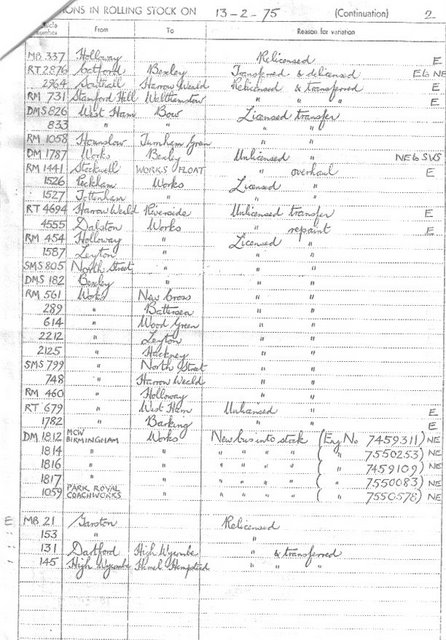 ONS IN ROLLING STOCK ON 13-2-75 (Continuation) 2
Number From To Reason for variation
MB 337 Holloway Relicensed E
RT 2876 Catford Bexley Transferred & delicensed E6 NE
2964 Southall Harrow Weald Relicensed & Transferred E
RM 731 Stamford Hill Walthamstow " " " E
DMS 826 West Ham Bow Licensed transfer
833 " " " "
RM 1058 Hounslow Turnham Green " " E
DM 1787 Works Bexley Unlicensed " NE6 SWS
RM 1441 Stockwell WORKS FLOAT " overhaul E
1526 Peckham Works Licensed "
1527 Tottenham " " "
RT 4694 Harrow Weald Riverside Unlicensed transfer E
4555 Dalston Works " repaint E
RM 454 Holloway " Licensed "
1587 Leyton " " "
SMS 805 North Street " " "
DMS 182 Bexley " " "
RM 561 Works New Cross " "
289 " Battersea " "
614 " Wood Green " "
2212 " Leyton " "
2125 " Hackney " "
SMS 799 " North Street " "
748 " Harrow Weald " "
RM 460 " Holloway " "
RT 679 " West Ham Unlicensed " E
1782 " Barking " " E
DM 1812 MCW BIRMINGHAM Works New bus into stock (Eng No 7459311) NE
1814 " " " " " " ( " 7550253) NE
1816 " " " " " " ( " 7459109) NE
1817 " " " " " " ( " 7550083) NE
1059 PARK ROYAL COACHWORKS " " " " " ( " 7550578) NE
MB 21 Garston Relicensed
153 " "
131 Dartford High Wycombe " & transferred
145 High Wycombe Hemel Hempstead " " "